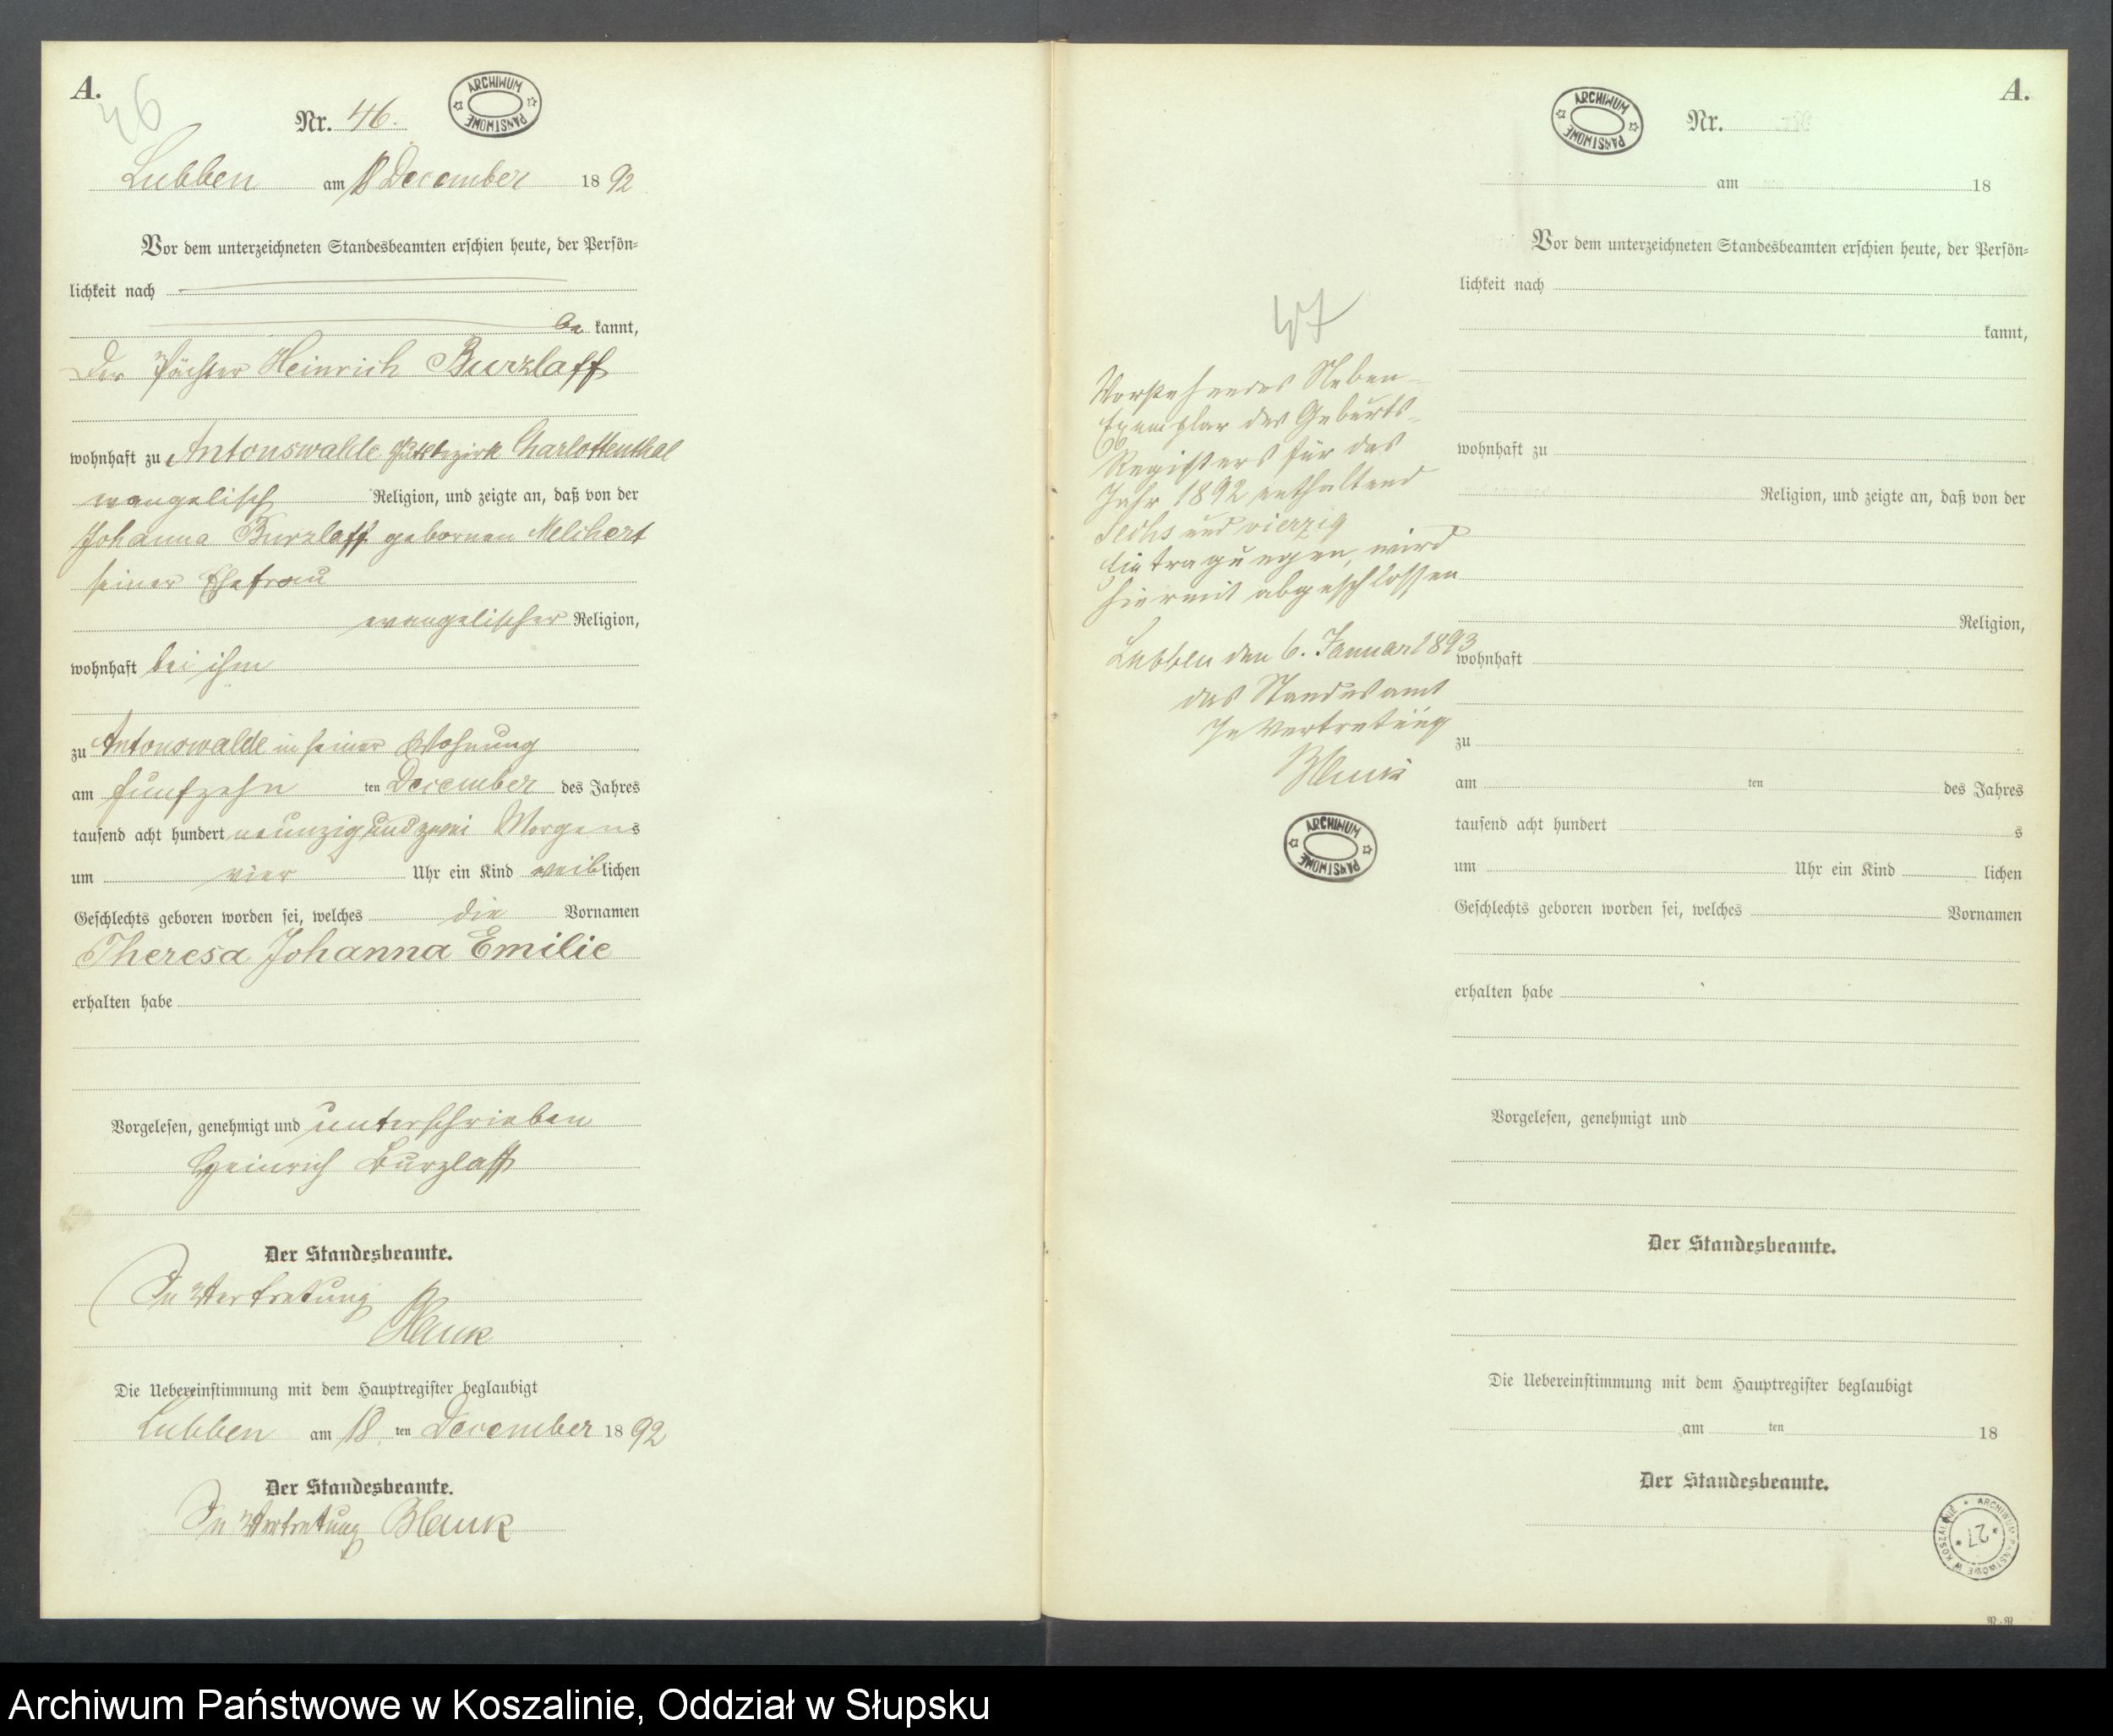 A.
46
Nr. 46.
ARCHIWUM PAŃSTWOWE
Lubben am 18 December 1892
Vor dem unterzeichneten Standesbeamten erschien heute, der Persön-
lichkeit nach
be kannt,
der Pächter Heinrich Burzlaff
wohnhaft zu Antonswalde Gutsbezirk Charlottenthal
evangelisch Religion, und zeigte an, daß von der
Johanna Burzlaff gebornen Melchert
seiner Ehefrau
evangelischer Religion,
wohnhaft bei ihm
zu Antonswalde in seiner Wohnung
am fünfzehn ten December des Jahres
tausend acht hundert neunzig und zwei Morgens
um vier Uhr ein Kind weiblichen
Geschlechts geboren worden sei, welches die Vornamen
Theresa Johanna Emilie
erhalten habe
Vorgelesen, genehmigt und unterschrieben
Heinrich Burzlaff
Der Standesbeamte.
In Vertretung
Die Uebereinstimmung mit dem Hauptregister beglaubigt
Lubben am 18 ten December 1892
Der Standesbeamte.
In Vertretung
47
Vorstehendes Neben-
Exemplar des Geburts-
Registers für das
Jahr 1892 enthaltend
sechs und vierzig
Eintragungen, wird
hiermit abgeschlossen
Lubben den 6. Januar 1893
das Standesamt
In Vertretung
ARCHIWUM PAŃSTWOWE
A.
ARCHIWUM PAŃSTWOWE
Nr.
am 18
Vor dem unterzeichneten Standesbeamten erschien heute, der Persön-
lichkeit nach
kannt,
wohnhaft zu
Religion, und zeigte an, daß von der
Religion,
wohnhaft
zu
am ten des Jahres
tausend acht hundert s
um Uhr ein Kind lichen
Geschlechts geboren worden sei, welches Vornamen
erhalten habe
Vorgelesen, genehmigt und
Der Standesbeamte.
Die Uebereinstimmung mit dem Hauptregister beglaubigt
am ten 18
Der Standesbeamte.
ARCHIWUM PAŃSTWOWE W KOSZALINIE
27
Archiwum Państwowe w Koszalinie, Oddział w Słupsku